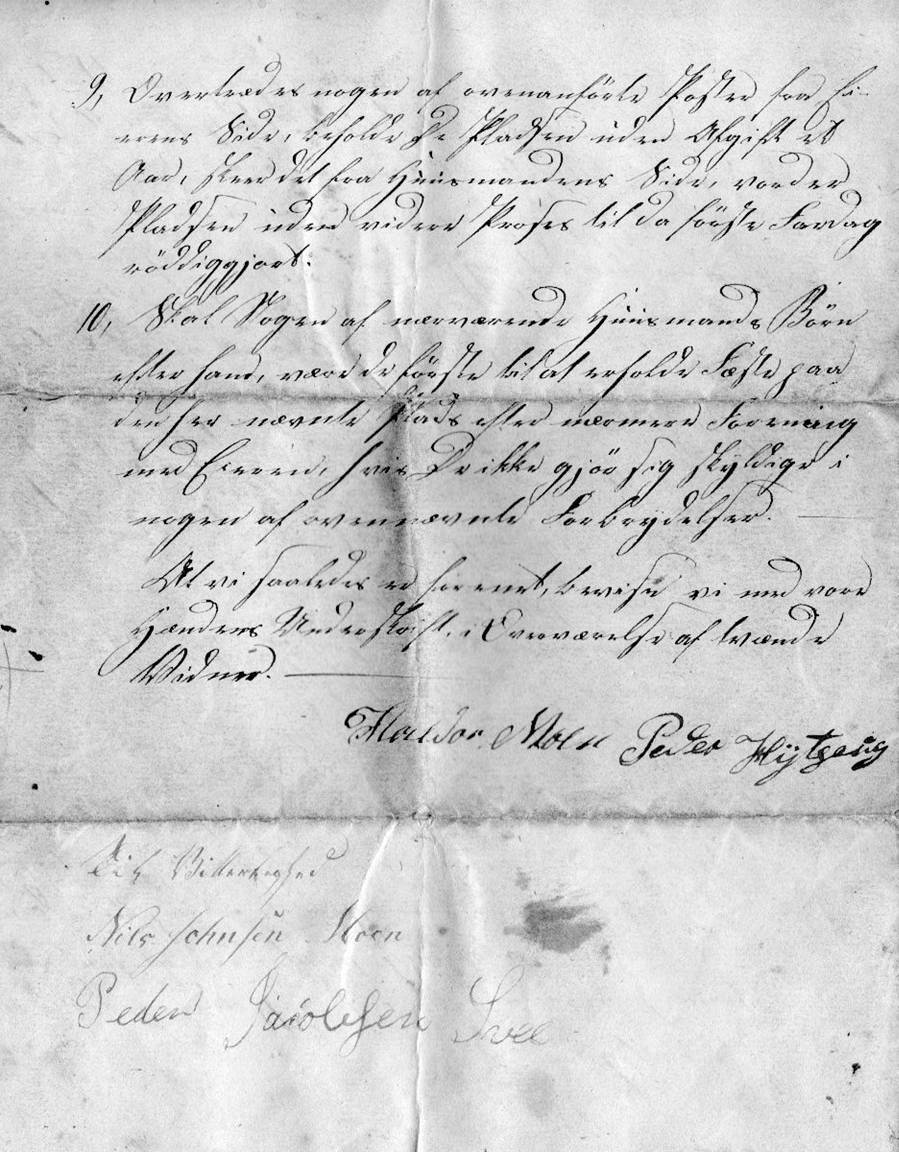 9, Overtrædes nogen af ovenanförte Poster fra Ei-
erens Side, beholde De Pladsen uden Afgift et
Aar, skeer det fra Huusmandens Side, vorder
Pladsen uden videre Proses til da förste Fardag
röddiggjort.
10, Skal Nogen af nærværende Huusmands Börn
efter ham, være de förste til at erholde Fæste paa
den her nævnte Plads efter nærmere Forening
med Eieren, hvis De ikke gjör sig skyldige i
nogen af ovennævnte Forbrydelser.
At vi saaledes er forenet, bevise vi med vore
Hænders Underskrift, i Overværelse af tvænde
Vidner.
Haldor Moen Peder
Til Vitterlighed
Nils Johnsen Moen
Peder Jacobsen Svee